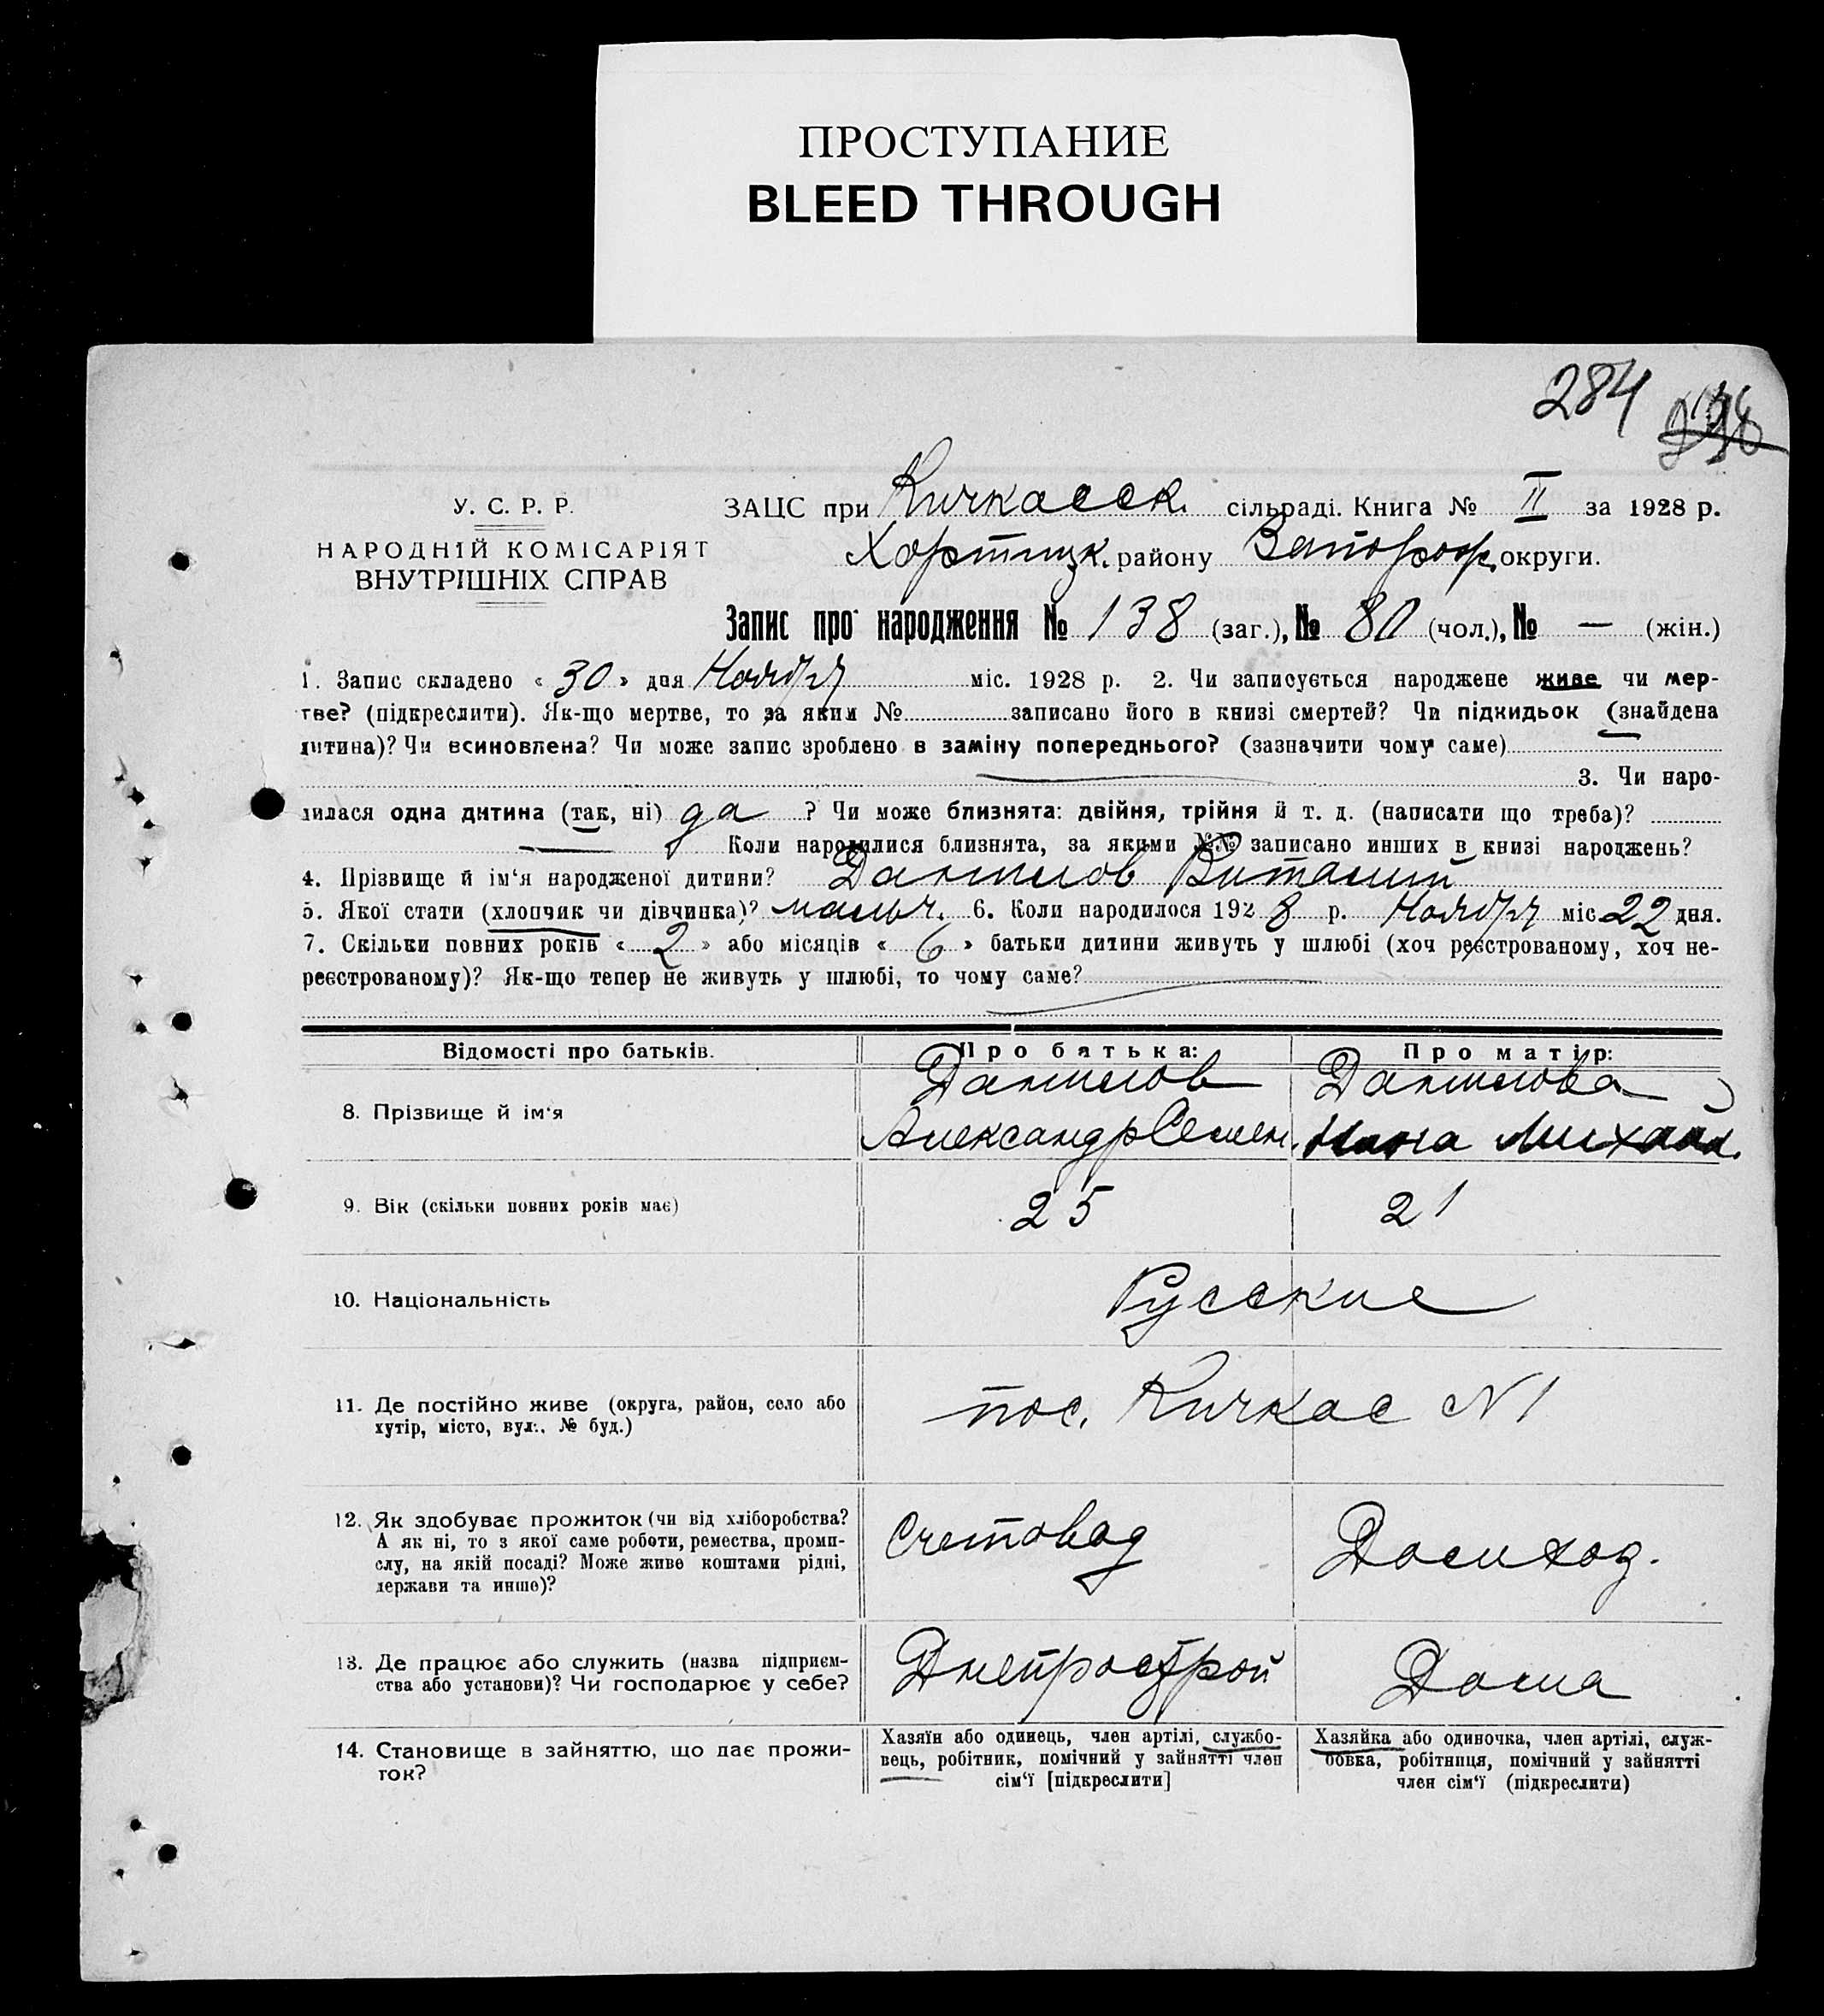 ПРОСТУПАНИЕ
BLEED THROUGH
284
У. С. Р. Р.
НАРОДНІЙ КОМІСАРІЯТ
ВНУТРІШНІХ СПРАВ
ЗАЦС при Кичкасск. сільраді. Книга № II за 1928 р.
Хортицк. району Запорож. округи.
Запис про народження № 138 (заг.), № 80 (чол.), № — (жін.)
1. Запис складено « 30 » дня Ноября міс. 1928 р. 2. Чи записується народжене живе чи мер-
тве? (підкреслити). Як-що мертве, то за яким № записано його в книзі смертей? Чи підкидьок (знайдена
дитина)? Чи всиновлена? Чи може запис зроблено в заміну попереднього? (зазначити чому саме)
3. Чи наро-
дилася одна дитина (так, ні) да ? Чи може близнята: двійня, трійня й т. д. (написати що треба)?
Коли народилися близнята, за якими №№ записано инших в книзі народжень?
4. Прізвище й ім‘я народженої дитини? Данилов Виталий
5. Якої стати (хлопчик чи дівчинка)? мальч. 6. Коли народилося 1928 р. Ноября міс 22 дня.
7. Скільки повних років « 2 » або місяців « 6 » батьки дитини живуть у шлюбі (хоч реєстрованому, хоч не-
реєстрованому)? Як-що тепер не живуть у шлюбі, то чому саме?
Відомості про батьків. Про батька: Про матір:
8. Прізвище й ім‘я Данилов Данилова
Александр Семен. Нина Михайл.
9. Вік (скільки повних років має) 25 21
10. Національність Русские
11. Де постійно живе (округа, район, село або
хутір, місто, вул., № буд.) пос. Кичкас N 1
12. Як здобуває прожиток (чи від хліборобства?
А як ні, то з якої саме роботи, ремества, проми-
слу, на якій посаді? Може живе коштами рідні,
держави та инше)? Счетовод Домхоз.
13. Де працює або служить (назва підприєм-
ства або установи)? Чи господарює у себе? Днепрострой Дома
14. Становище в зайняттю, що дає прожи-
ток?
Хазяїн або одинець, член артілі, службо-
вець, робітник, помічний у зайнятті член
сім‘ї [підкреслити]
Хазяйка або одиночка, член артілі, служ-
бовка, робітниця, помічний у зайнятті
член сім‘ї (підкреслити)